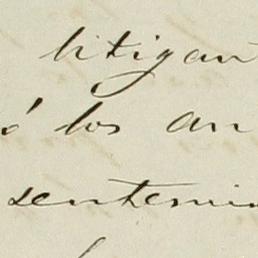 litigan
ó los an
sentenci